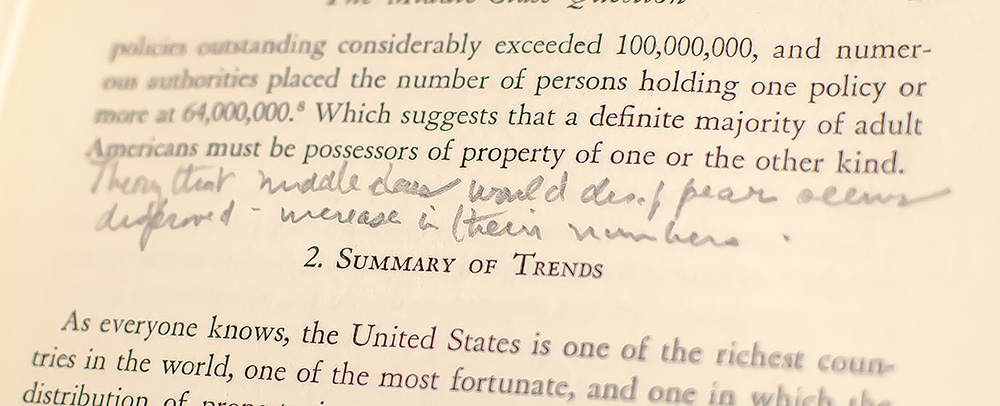 The Middle Class Question
policies outstanding considerably exceeded 100,000,000, and numer-
ous authorities placed the number of persons holding one policy or
more at 64,000,000.⁸ Which suggests that a definite majority of adult
Americans must be possessors of property of one or the other kind.
Theory that middle class would disappear seems
disproved - increase in their numbers.
2. SUMMARY OF TRENDS
As everyone knows, the United States is one of the richest coun-
tries in the world, one of the most fortunate, and one in which the
distribution of